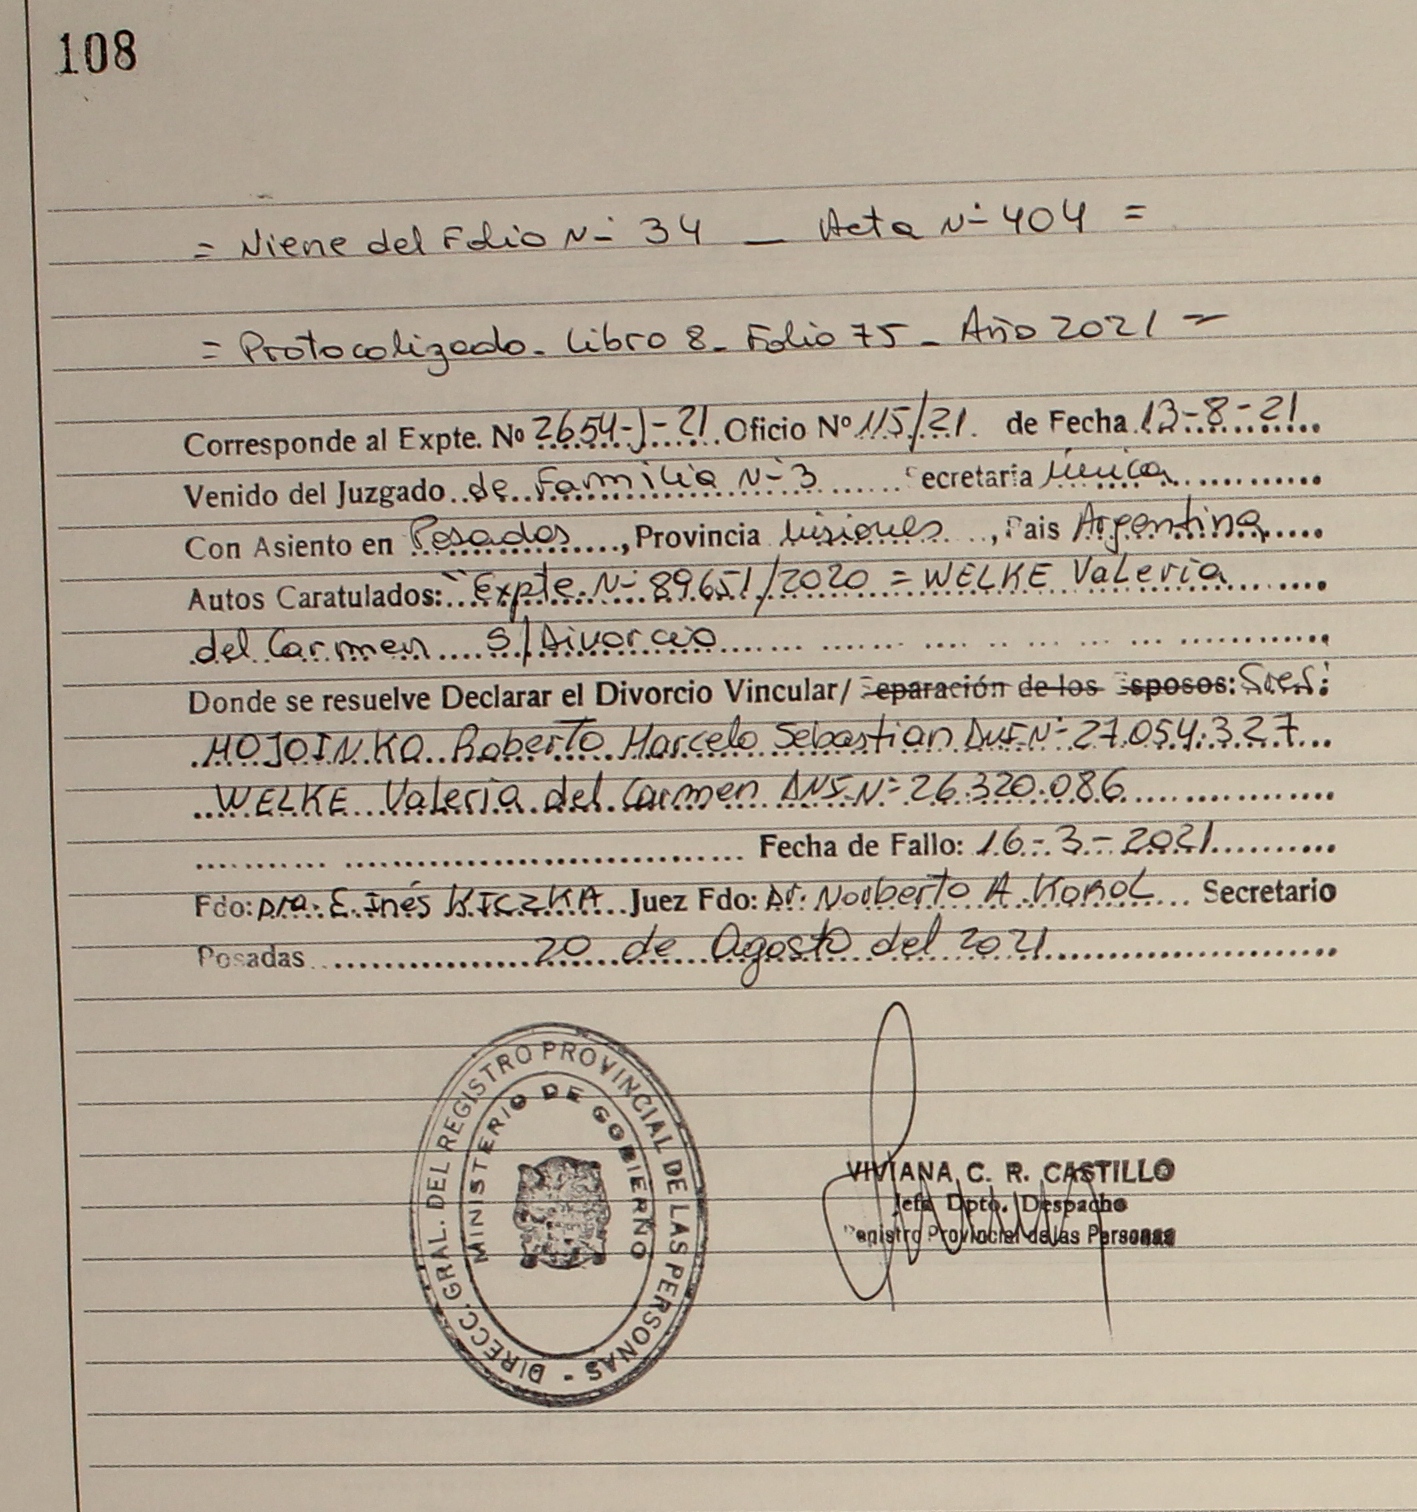 108
= Viene del Folio N- 34 _ Acta N- 404 =
= Protocolizado. Libro 8_ Folio 75 _ Año 2021 =
Corresponde al Expte. Nº 2654-J-21 Oficio Nº 115/21. de Fecha 13-8-21
Venido del Juzgado de Familia N-3 ecretaria Única
Con Asiento en Posadas, Provincia Misiones, Pais Argentina
Autos Caratulados: "Expte. N- 89651/2020 = WELKE Valeria
del Carmen S/Divorcio
Donde se resuelve Declarar el Divorcio Vincular/ eparación de los esposos: Sres:
MOJOINKO Roberto Marcelo Sebastian DNI N- 27.054.327
WELKE Valeria del Carmen DNI N- 26.320.086
Fecha de Fallo: 16-3-2021
Fdo: Dra. E. Inés KICZKA Juez Fdo: Dr. Norberto A. KOROL Secretario
Posadas 20 de Agosto del 2021
DIRECC. GRAL. DEL REGISTRO PROVINCIAL DE LAS PERSONAS -
MINISTERIO DE GOBIERNO
VIVIANA C. R. CASTILLO
Jefa Dpto. Despacho
Registro Provincial de las Personas